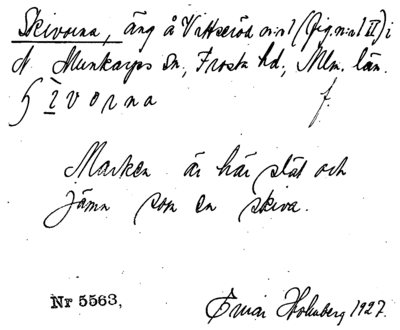 Skivorna, äng å Vittseröd n:r 1 (fig. n:o 1 II) i
N. Munkarps sn, Frosta hd, Mlm. län.
ʃ ì v o r n a f.
Marken är här slät och
jämn som en skiva.
Nr 5563, Einar Holmberg 1927.